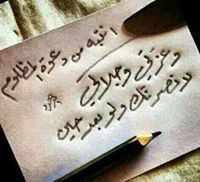 اتقِ من دعوة المظلوم
وعزتي وجلالي
لأنصرنك ولو بعد حين